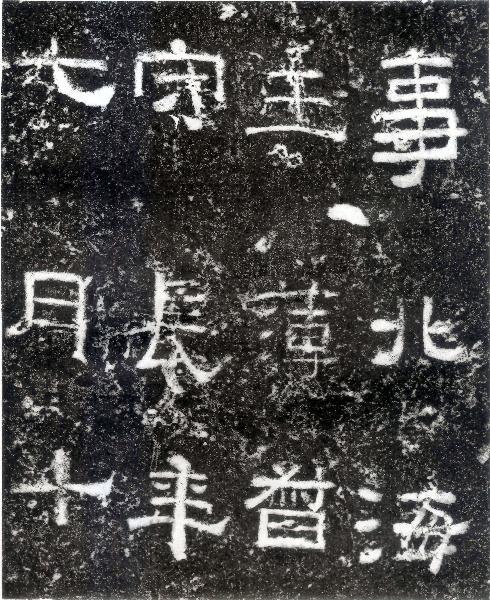 事北海
主薄督
守長年
七月十